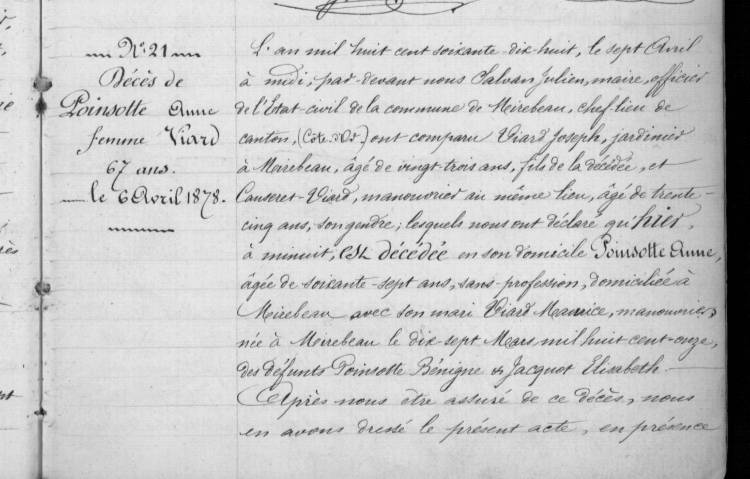 N° 21
Décès de
Poinsotte Anne
femme Viard
67 ans.
le 6 Avril 1878.
L'an mil huit cent soixante-dix-huit, le sept Avril
à midi, par-devant nous Salvan Julien, maire, officier
de l'État-civil de la commune de Mirebeau, chef-lieu de
canton, (Côte-d'Or) ont comparu Viard Joseph, jardinier
à Mirebeau, âgé de vingt-trois ans, fils de la décédée, et
Causeret-Viard, manouvrier au même lieu, âgé de trente-
cinq ans, son gendre; lesquels nous ont déclaré qu'hier,
à minuit, est décédée en son domicile Poinsotte Anne,
âgée de soixante-sept ans, sans profession, domiciliée à
Mirebeau avec son mari Viard Maurice, manouvrier,
née à Mirebeau le dix-sept Mars mil huit cent-onze,
des défunts Poinsotte Bénigne & Jacquot Elisabeth
Après nous être assuré de ce décès, nous
en avons dressé le présent acte, en présence